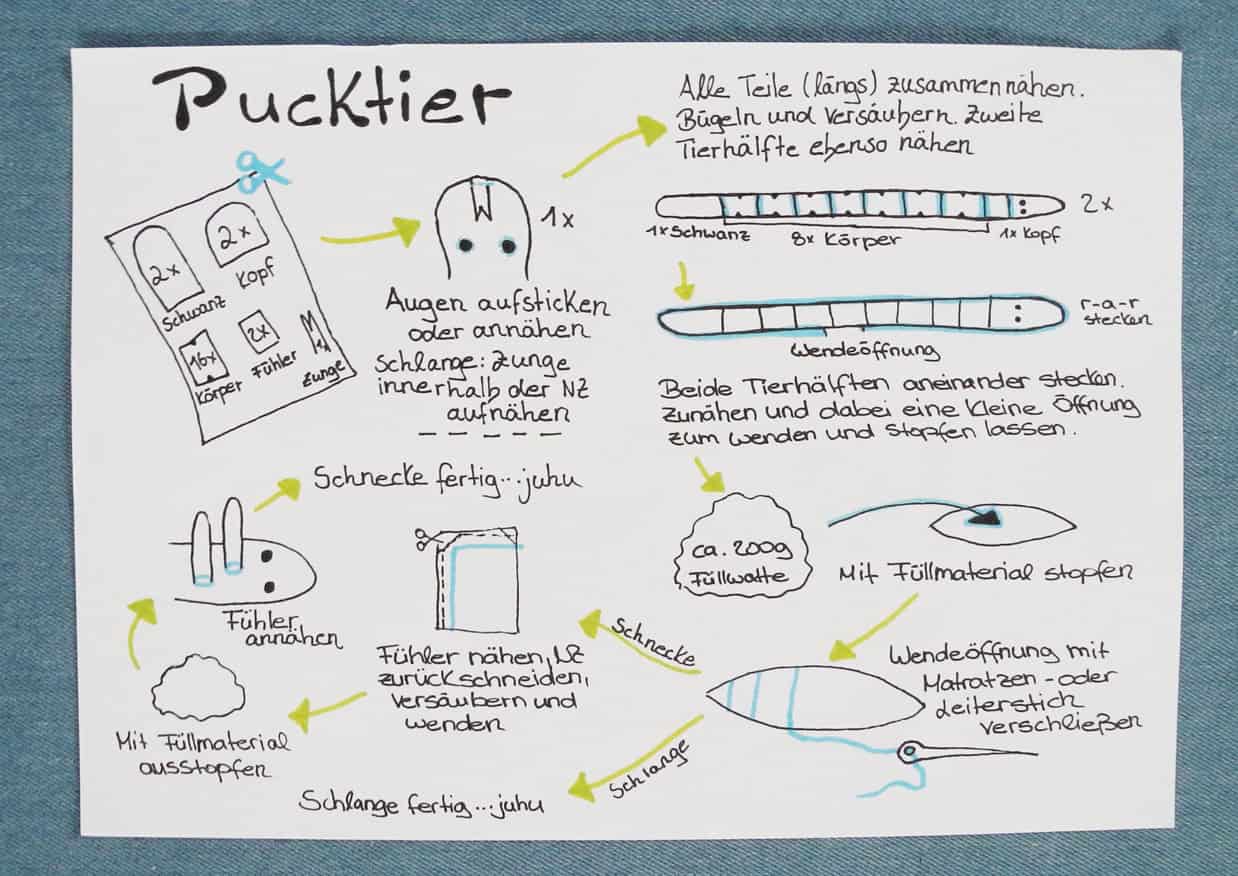 Pucktier
2x
Schwanz
2x
Kopf
16x
Körper
2x
Fühler
1x
Zunge
1x
Augen aufsticken
oder annähen
Schlange: Zunge
innerhalb der NZ
aufnähen
Alle Teile (längs) zusammennähen.
Bügeln und Versäubern. Zweite
Tierhälfte ebenso nähen
2x
1x Schwanz
8x Körper
1x Kopf
r-a-r
stecken
Wendeöffnung
Beide Tierhälften aneinander stecken.
Zunähen und dabei eine kleine Öffnung
zum wenden und stopfen lassen.
ca. 200g
Füllwatte
Mit Füllmaterial stopfen
Wendeöffnung mit
Matratzen- oder
Leiterstich
verschließen
Schnecke
Schlange
Fühler nähen, NZ
zurückschneiden,
Versäubern und
wenden
Mit Füllmaterial
ausstopfen
Fühler
annähen
Schnecke fertig...juhu
Schlange fertig...juhu